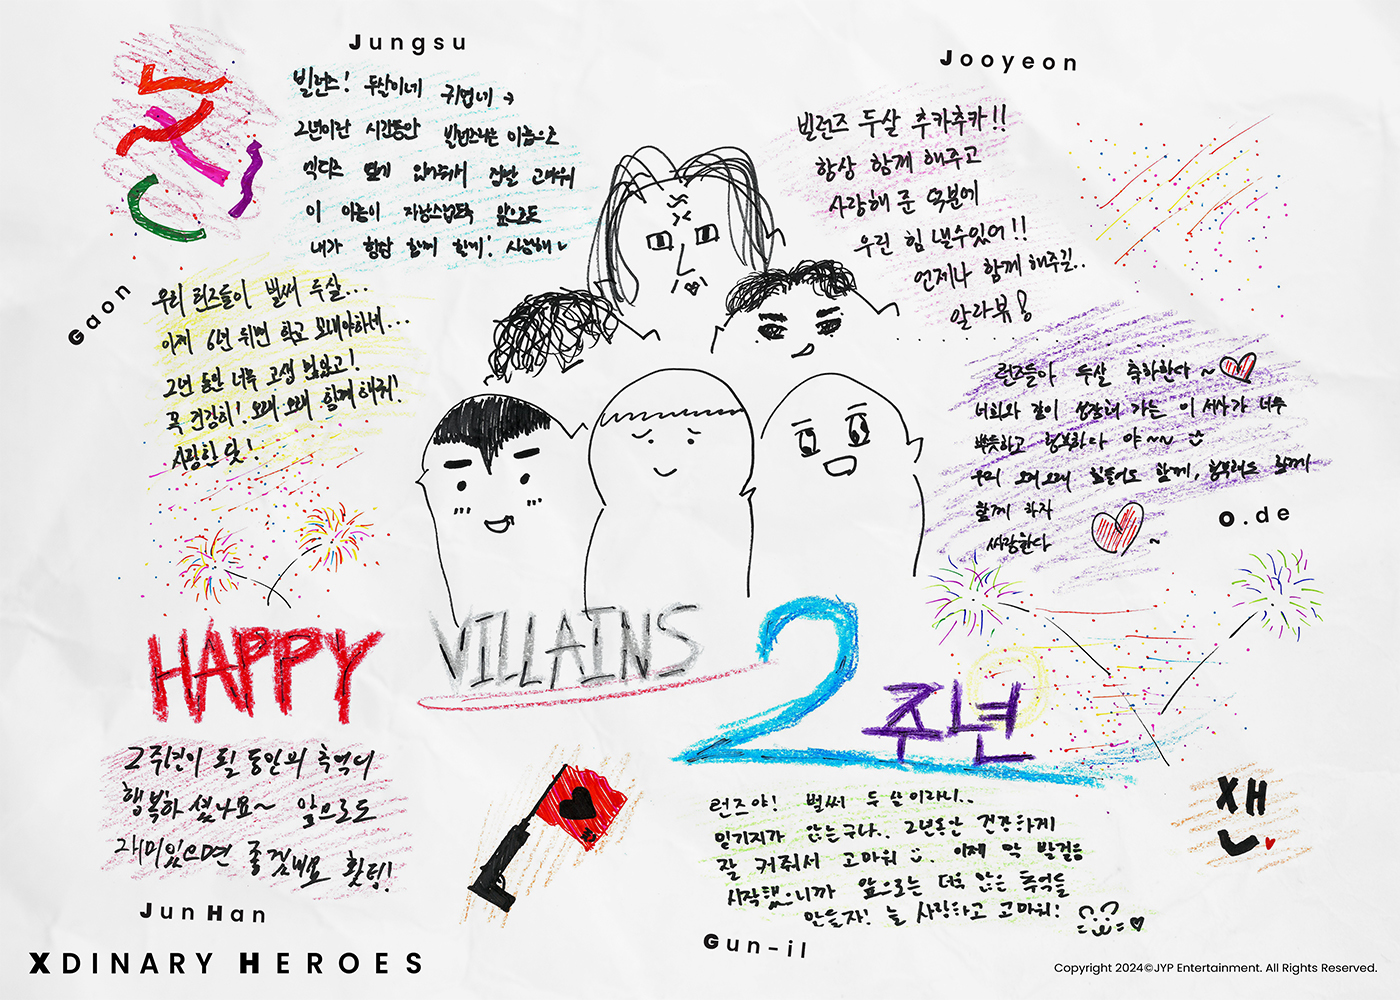 Jungsu
빌런즈! 두살이네 귀엽네 →
2년이란 시간동안 빌런즈라는 이름으로
엑디즈 옆에 있어줘서 정말 고마워
이 이름이 자랑스럽도록 앞으로도
내가 항상 함께 할게! 사랑해
Jooyeon
빌런즈 두살 추카추카!!
항상 함께 해주고
사랑해 준 덕분에
우린 힘 낼수있어!!
언제나 함께 해주길..
알라뷰
Gaon
우리 런즈들이 벌써 두살...
이제 6년 뒤면 학교 보내야하네...
2년 동안 너무 고생 많았고!
꼭 건강히! 오래오래 함께해줘!
사랑한닷!
런즈들아 두살 축하한다~
너희와 같이 성장해 가는 이 서사가 너무
뿌듯하고 행복하다 야~~
우리 오래오래 힘들어도 함께, 행복해도 함께
함께 하자
싸랑한다 ~
O.de
HAPPY
VILLAINS
2주년
2주년이 될 동안의 추억이
행복하셨나요~ 앞으로도
재미있으면 좋겠네요 홧팅!
JunHan
런즈야! 벌써 두살이라니..
믿기지가 않는구나.. 2년동안 건강하게
잘 커줘서 고마워. 이제 막 발걸음
시작했으니까 앞으로는 더욱 많은 추억들
만들자! 늘 사랑하고 고마워!
Gun-il
XH
XDINARY HEROES
Copyright 2024©JYP Entertainment. All Rights Reserved.